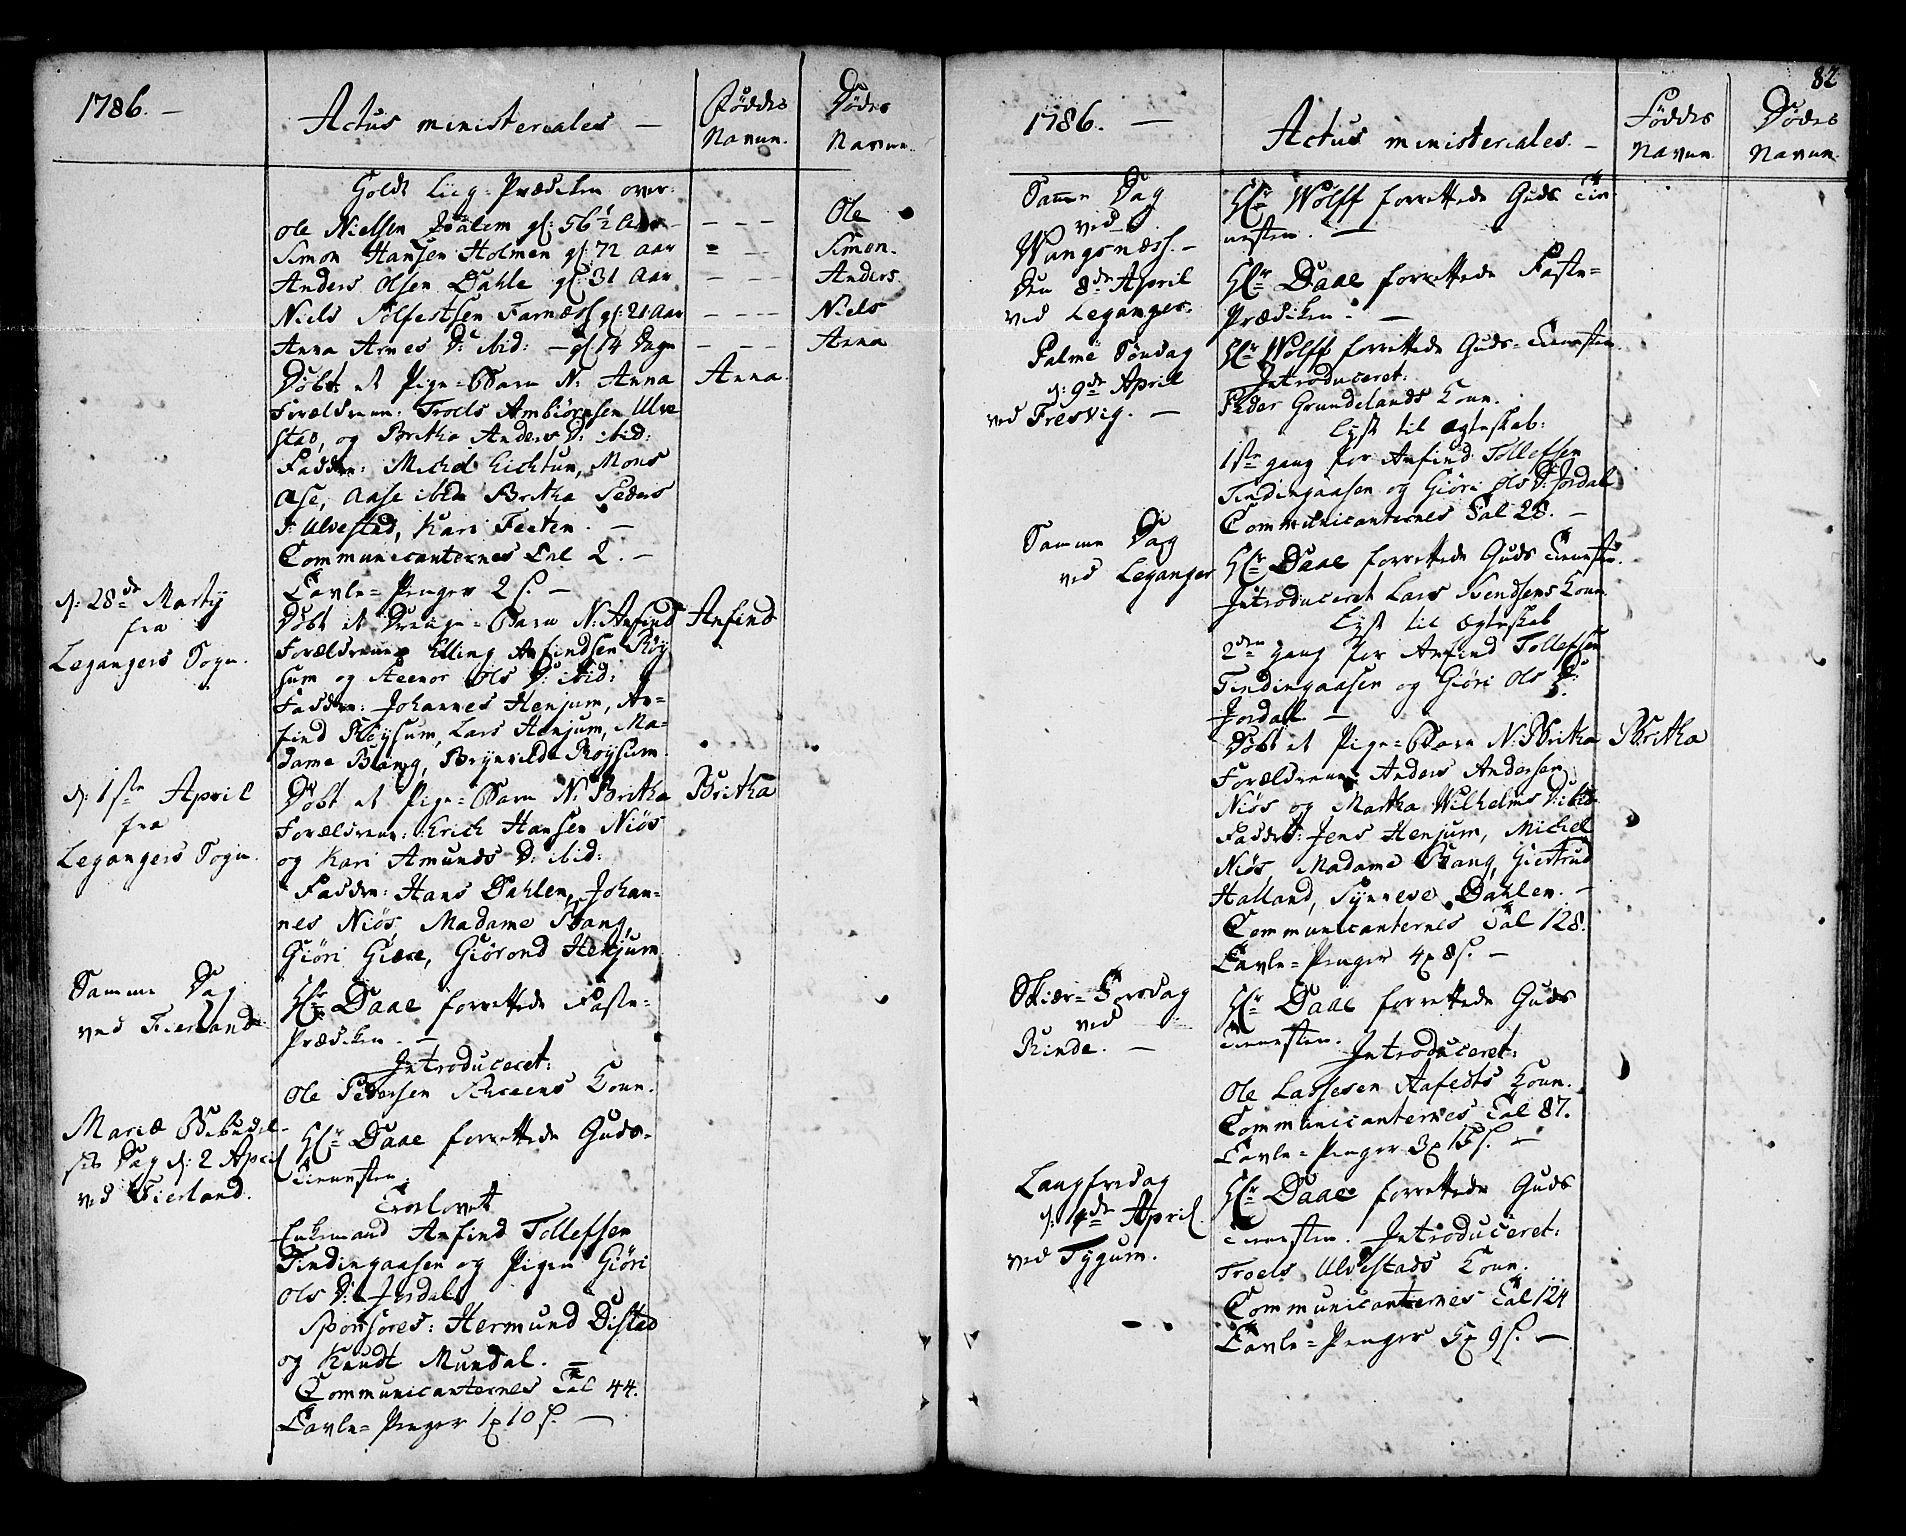 1786. —
Actus ministeriales —
Föddes Navne.
Dödes Navne.
Holdt Liig-Prædiken over:
Ole Nielsen gl: 56½ Aar — — — Ole
Simon Hansen Holmen gl: 72 Aar — — Simon.
Anders Olsen Dahle gl: 31 Aar — — Anders.
Niels Sølfestsen Farnæss gl: 21 Aar — — — Niels
Anna Arnes D: ibid: — gl: 14 Dage — — — Anna
Döbt et Pige-Barn N: Anna Anna.
Forældrene: Troels Ambiörnsen Ulve
stad, og Britha Anders D: ibid:
Faddre: Michel Eichtun, Mons
Ase, Aase ibid Britha Peders
D: Ulvestad, Kari Feeten. —
Communicanternes Tal 2. —
Tavle-Penger 2 s. —
d: 28de Martij
fra
Legangers Sogn.
Döbt et Drenge-Barn N: Anfind Anfind
Forældrene Elling Anfindsen Röy
sum og Ols D: ibid:
Faddre: Johannes Henjum, An-
find Röysum, Lars Henjum, Ma-
dame Bang, Brynilde Röysum.
d: 1ste April
fra
Legangers Sogn.
Döbt et Pige-Barn N: Britha Britha
Forældrene: Erich Hansen Niös
og Kari Amunds D: ibid:
Faddre: Hans Dahlen, Johan-
nes Niös, Madame Bang,
Giöri Giære, Giörond Henjum
Samme Dag
ved Fierland
Hr Daae forrettede Faste-
Prædiken. —
Introduceret:
Ole Pedersen Kone.
Mariæ Bebudel-
ses Dag d: 2 April
ved Fierland.
Hr Daae forrettede Guds-
Tienesten.
Trolovet
Enkemand Anfind Tollefsen
Tindingaasen og Pigen Giöri
Ols D: Jordal
Sponsores: Hermund Distad
og Knudt Mundal. —
Communicanternes Tal 44.
Tavle-Penger 1 10 s. —
82
1786. —
Actus ministeriales. —
Föddes Navne.
Dödes Navne.
Samme Dag
ved
Wangsnæss. —
Hr Wolff forrettede Guds Tie-
nesten. —
Den 8de April
ved Leganger.
Hr Daae forrettede Faste-
Prædiken. —
Palme Söndag
d: 9de April
ved Fresvig. —
Hr Wolff forrettede Guds-Tienesten
Introduceret:
Peder Grundelands Kone.
Lyst til Ægteskab:
1ste gang for Anfind Tollefsen
Tindingaasen og Giöri Ols D: Jordal
Communicanternes Tal 28. —
Samme Dag
ved Leganger
Hr Daae forrettede Guds Tienesten.
Introduceret Lars Svendsens Kone
Lyst til Ægteskab
2den gang for Anfind Tollefsen
Tindingaasen og Giöri Ols D:
Jordal —
Döbt et Pige-Barn N: Britha Britha
Forældrene Anders Andersen
Niös og Martha Wilhelms D: ibid
Faddre: Jens Henjum, Michel
Niös, Madame Bang, Giertrud
Halland, Synneve Dahlen. —
Communicanternes Tal 128.
Tavle-Penger 4 8 s. —
Skiær-Torsdag
ved
Rinde. —
Hr Daae forrettede Guds
Tienesten.
Introduceret:
Ole Lassesen Aafedts Kone.
Communicanternes Tal 87.
Tavle-Penger 3 15 s. —
Langfredag
d: 14de April.
ved Tygum.
Hr Daae forrettede Guds
Tienesten. Introduceret:
Troels Ulvestads Kone.
Communicanternes Tal 124
Tavle-Penger 5 9 s. —